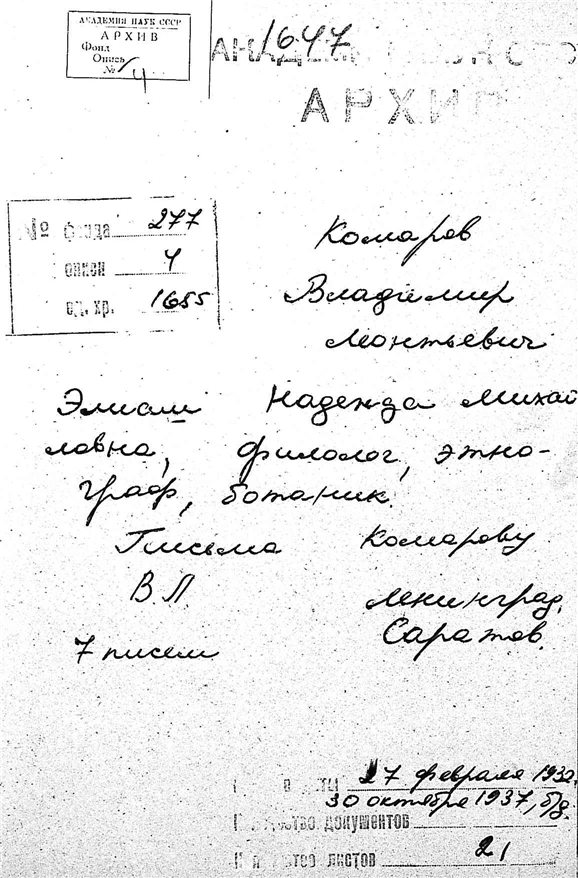 АКАДЕМИЯ НАУК СССР
АРХИВ
Фонд
Опись
№ 4
1647
АРХИВ
№ фонда 277
описи 4
ед. хр. 1655
Комаров
Владимир
Леонтьевич
Элиаш Надежда Михай
ловна, филолог, этно-
граф, ботаник.
Письма Комарову
В.Л. Ленинград,
Саратов.
7 писем
27 февраля 1932,
30 октября 1937, б/д.
документов
листов 21